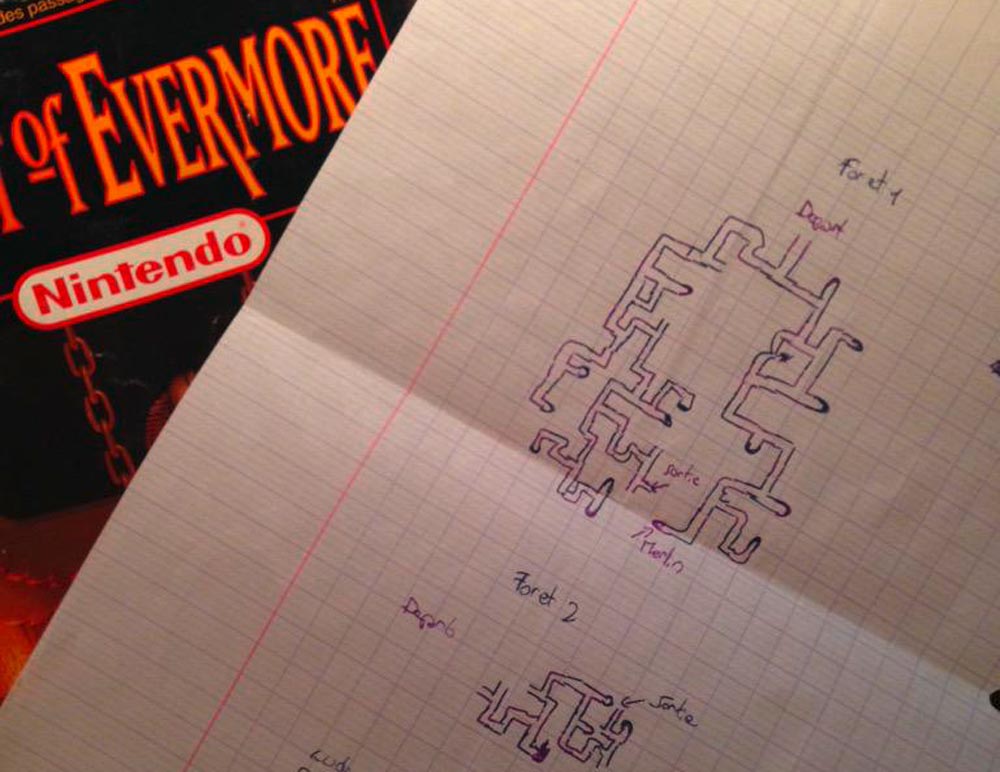 des passag
of EVERMORE
Nintendo
Foret 1
Depart
Sortie
Merlin
Foret 2
Depart
Sortie